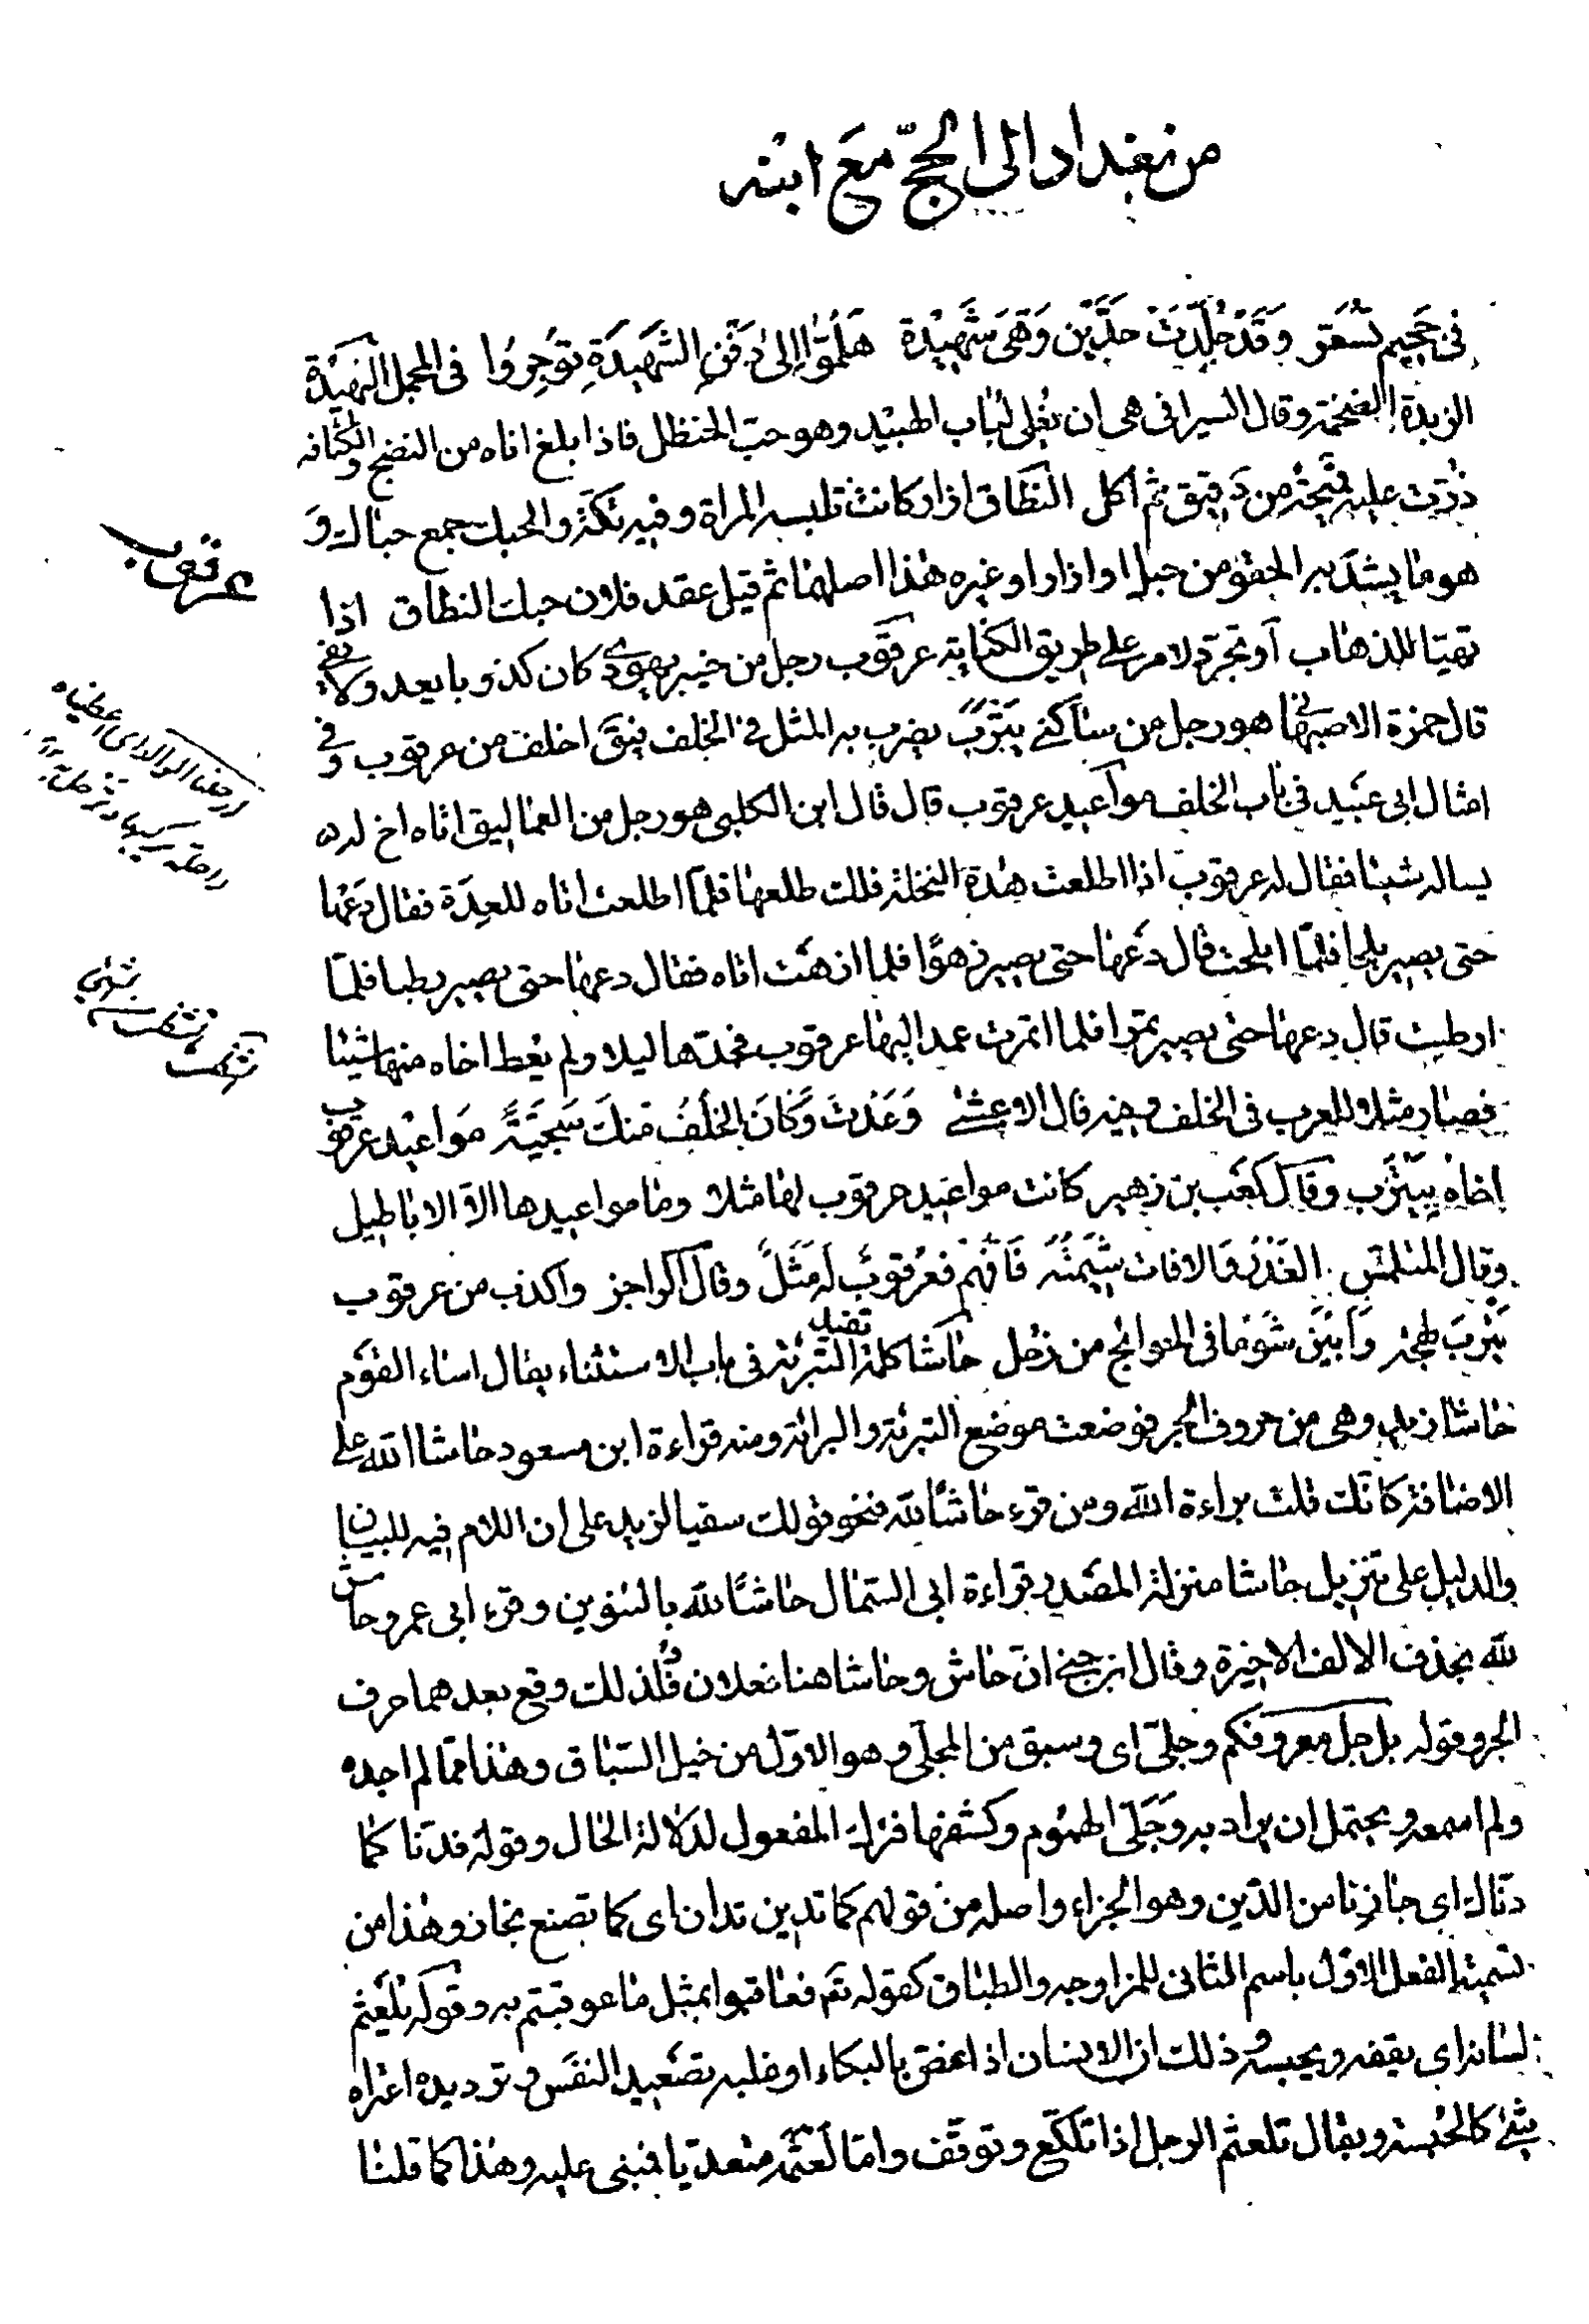 من بغداد الى الحجّ مع ابنه
فى جحيم تسّعّر وَقَدْ جُلِدَتْ حدَّين وَهَى شَهِيْدة هَلُمُّوا اِلىٰ دَفْنِ الشَّهِيدَةِ تُوْجِرُوا فى المجمل النَهِيْدة
الزبدة الضخمة وقال السيرافى هى ان يُغلى لُباب الهبيد وهو حب الحنظل فاذا بلغ اناه من النضج والكثافه
ذُرّت عليه قميحة من دَقيق ثم اُكل النطاق ازار كانت تلبسه المراة وفيه تكّة والحبك جمع حباك و
هو ما يشدّ به الحقو من حبل او ازار او غيره هذا اصلهما ثم قيل عقد فلان حبك النطاق اذا
تهيّا للذهاب أو تجرّد لامر على طريق الكناية عرقوب رجل من خيبر يهودىّ كان كذوبا يعد ولا يفى
قال حمزة الاصبهانى هو رجل من ساكنى يَتْرَب يضرب به المثل فى الخلف فيقَ اخلف من عرقوب وفى
امثال ابى عبيد فى باب الخلف مواعيد عرقوب قال قال ابن الكلبى هو رجل من العماليق اتاه اخ له
يساله شيئا فقال له عرقوب اذا اطلعت هذة النخلة فلك طلعها فلمّا اطلعت اتاه للعِدَة فقال دَعْها
حتى يصير بلحا فلمّا ابلحت قال دَعْها حتى يصير زهوًا فلما ازهَت اتاه فقال دعها حتى يصير رطبا فلمّا
ارطبت قال دعها حتى يصير تمرا فلما اتمرت عمد اليها عرقوب فجدّها ليلا ولم يُعط اخاه منها شيئا
فصار مثلا للعرب فى الخلف وفيه قال الاعشى وَعَدْتَ وَكَانَ الخُلْفُ مِنكَ سَجِيَّةً مَواعْيد عرقوب
اخاه بِيَتْرَب وقال كعْب بن زهير كانت مواعيد عرقوب لها مثلا وما مواعيدها الا الاباطيل
وقال المتلمّس الغَدْرُ والافات شِيْمَتُه فَافْهَمْ فعُرقوبٌ لَه مَثَلٌ وقال الراجز واكذب من عرقوب
يَتْرَبَ لهجةً وَاَبْيَنُ شُؤْما فى الحوائج من زحل حاشا كلمة التبرئة فى باب الاستثناء يقال اساء القوم
حاشا زيد وهى من حروف الجر فوضعت موضع التبرئة والبرائة ومنه قراءة ابن مسعود حاشا الله على
الاضافة كانّك قلت براءة الله ومن قرء حاشًا لله فنحو قولك سقيا لزيد على ان اللام فيه للبيان
والدليل على تنزيل حاشا منزلة المصدر قراءة ابى السّمال حاشًا لله بالتنوين وقرء ابى عمرو حاش
لله بحذف الالف الاخيرة وقال ابن جنى انّ حاش وحاشا هنا فعلان فلذلك وقع بعدهما حرف
الجر وقوله بل جل معروفكم وجلىّ اى وسبق من المجلّى وهو الاوّل من خيل السّباق وهذا ممّا لم اجده
ولم اسمعه ويحتمل ان يراد به وَجَلّى الهموم وكشفها فترك المفعول لدلالة الحال وقوله فدنّا كما
دنّاك اى جازنا من الدّين وهو الجزاء واصله من قولهم كما تدين تدان اى كما تصنع تجاز وهذا من
تسمية الفعل الاوّل باسم الثانى للمزاوجه والطباق كقوله تع فعاقبوا بمثل ما عوقبتم به وقوله يلعثم
لسانه اى يقفه ويحبسه وذلك ان الانسان اذا غص بالبكاء او غلبه تصعيد النفَس وترديده اعتراه
شئ كالحُبسة ويقال تلعثم الرجل اذا تلكّع وتوقّف وامّا لَعْثَمَه متعدّيا فمبنى عليه وهذا كما قلنا
عرقوب